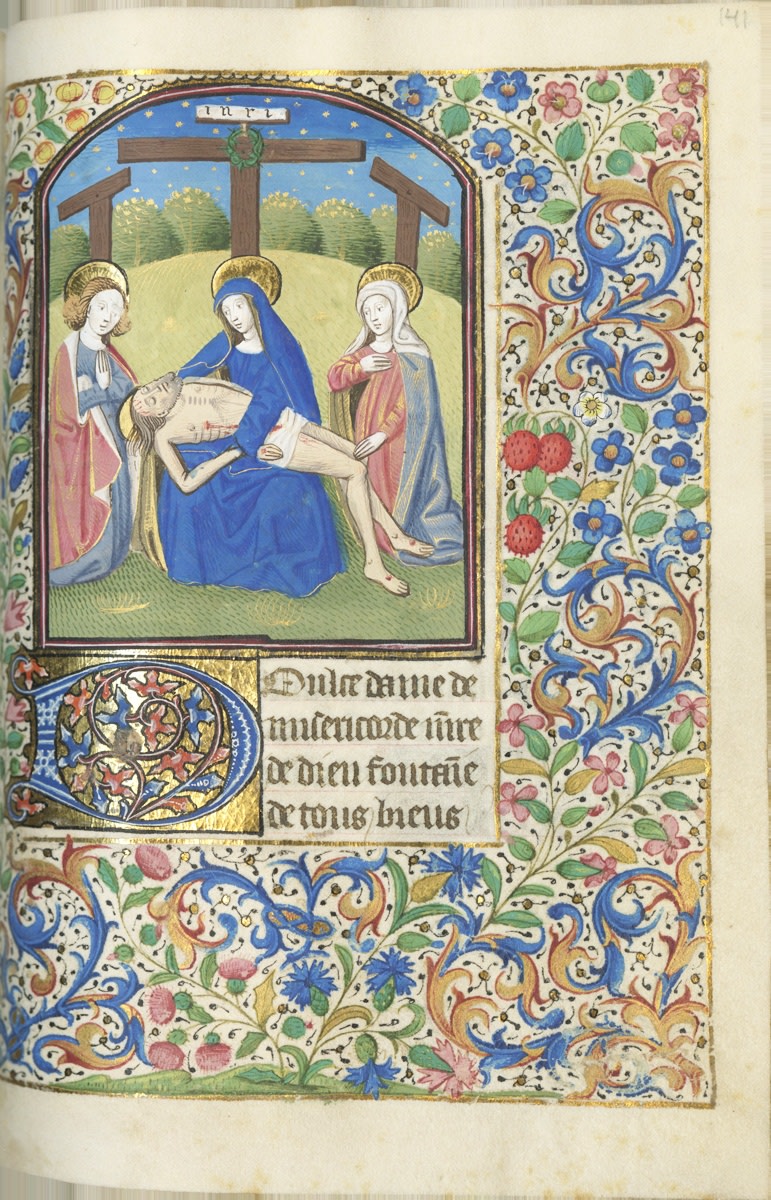 141
inri
Doulce dame de
misericorde m̄re
de dieu fontaīe
de tous biens